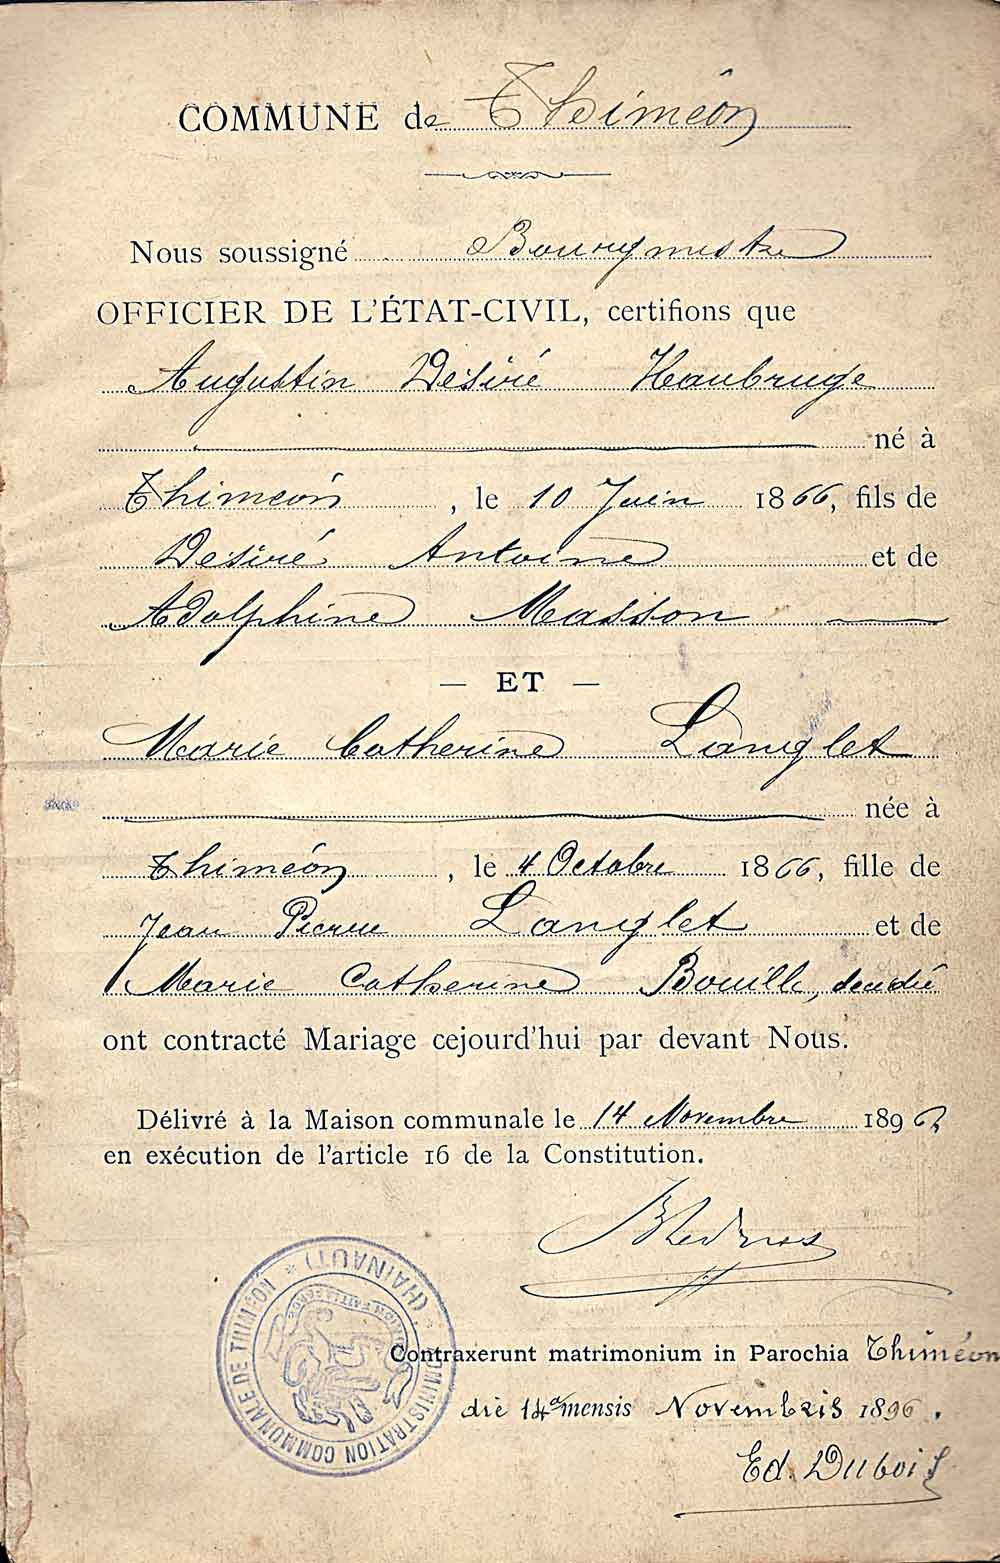 COMMUNE de Thiméon
Nous soussigné Bourgmestre
OFFICIER DE L'ÉTAT-CIVIL, certifions que
Augustin Désiré Haubruge
né à
Thiméon, le 10 Juin 1866, fils de
Désiré Antoine et de
Adolphine Masson
— ET —
Marie Catherine Langlet
née à
Thiméon, le 4 Octobre 1866, fille de
Jean Pierre Langlet et de
Marie Catherine Bouille,
ont contracté Mariage cejourd'hui par devant Nous.
Délivré à la Maison communale le 14 Novembre 1896
en exécution de l'article 16 de la Constitution.
ADMINISTRATION COMMUNALE DE THIMÉON * (HAINAUT)
Contraxerunt matrimonium in Parochia Thiméon
die 14a mensis Novembris 1896.
Ed. Dubois